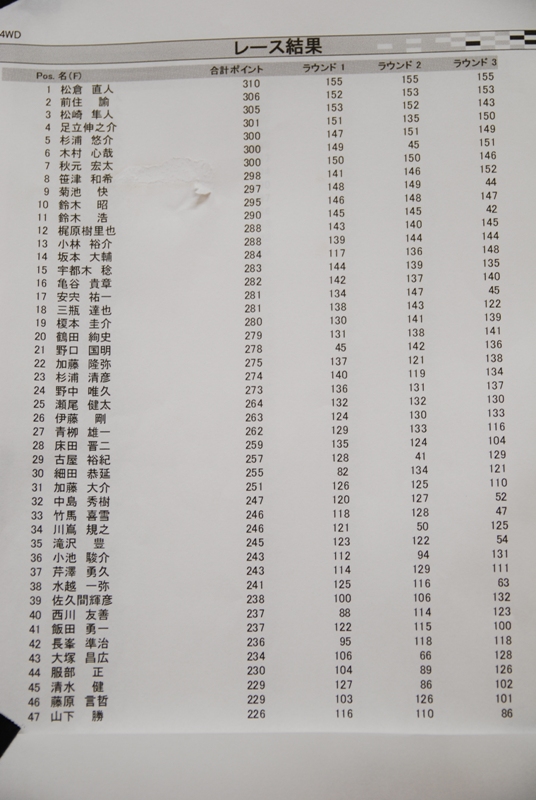 4WD
レース結果
Pos. 名(F) 合計ポイント ラウンド 1 ラウンド 2 ラウンド 3
1 松倉 直人 310 155 155 155
2 前住 諭 306 152 153 153
3 松崎 隼人 305 153 152 143
4 足立伸之介 301 151 135 150
5 杉浦 悠介 300 147 151 149
6 木村 心哉 300 149 45 151
7 秋元 宏太 300 150 150 146
8 笹津 和希 298 141 146 152
9 菊池 快 297 148 149 44
10 鈴木 昭 295 146 148 147
11 鈴木 浩 290 145 145 42
12 梶原樹里也 288 143 140 145
13 小林 裕介 288 139 144 144
14 坂本 大輔 284 117 136 148
15 宇都木 稔 283 144 139 135
16 亀谷 貴章 282 142 137 140
17 安宍 祐一 281 134 147 45
18 三瓶 達也 281 138 143 122
19 榎本 圭介 280 130 141 139
20 鶴田 絢史 279 131 138 141
21 野口 国明 278 45 142 136
22 加藤 隆弥 275 137 121 138
23 杉浦 清彦 274 140 119 134
24 野中 唯久 273 136 131 137
25 瀬尾 健太 264 132 132 130
26 伊藤 剛 263 124 130 133
27 青栁 雄一 262 129 133 116
28 床田 晋二 259 135 124 104
29 古屋 裕紀 257 128 41 129
30 細田 恭延 255 82 134 121
31 加藤 大介 251 126 125 110
32 中島 秀樹 247 120 127 52
33 竹馬 喜雪 246 118 128 47
34 川嶌 規之 246 121 50 125
35 滝沢 豊 245 123 122 54
36 小池 駿介 243 112 94 131
37 芹澤 勇久 243 114 129 111
38 水越 一弥 241 125 116 63
39 佐久間輝彦 238 100 106 132
40 西川 友善 237 88 114 123
41 飯田 勇一 237 122 115 100
42 長峯 準治 236 95 118 118
43 大塚 昌広 234 106 66 128
44 服部 正 230 104 89 126
45 清水 健 229 127 86 102
46 藤原 言哲 229 103 126 101
47 山下 勝 226 116 110 86